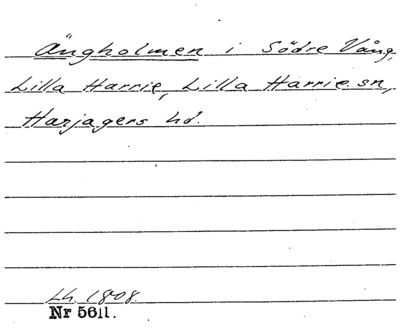 Ängholmen i Södre Vång,
Lilla Harrie, Lilla Harrie sn,
Harjagers hd.
Lh. 1808.
Nr 5611.